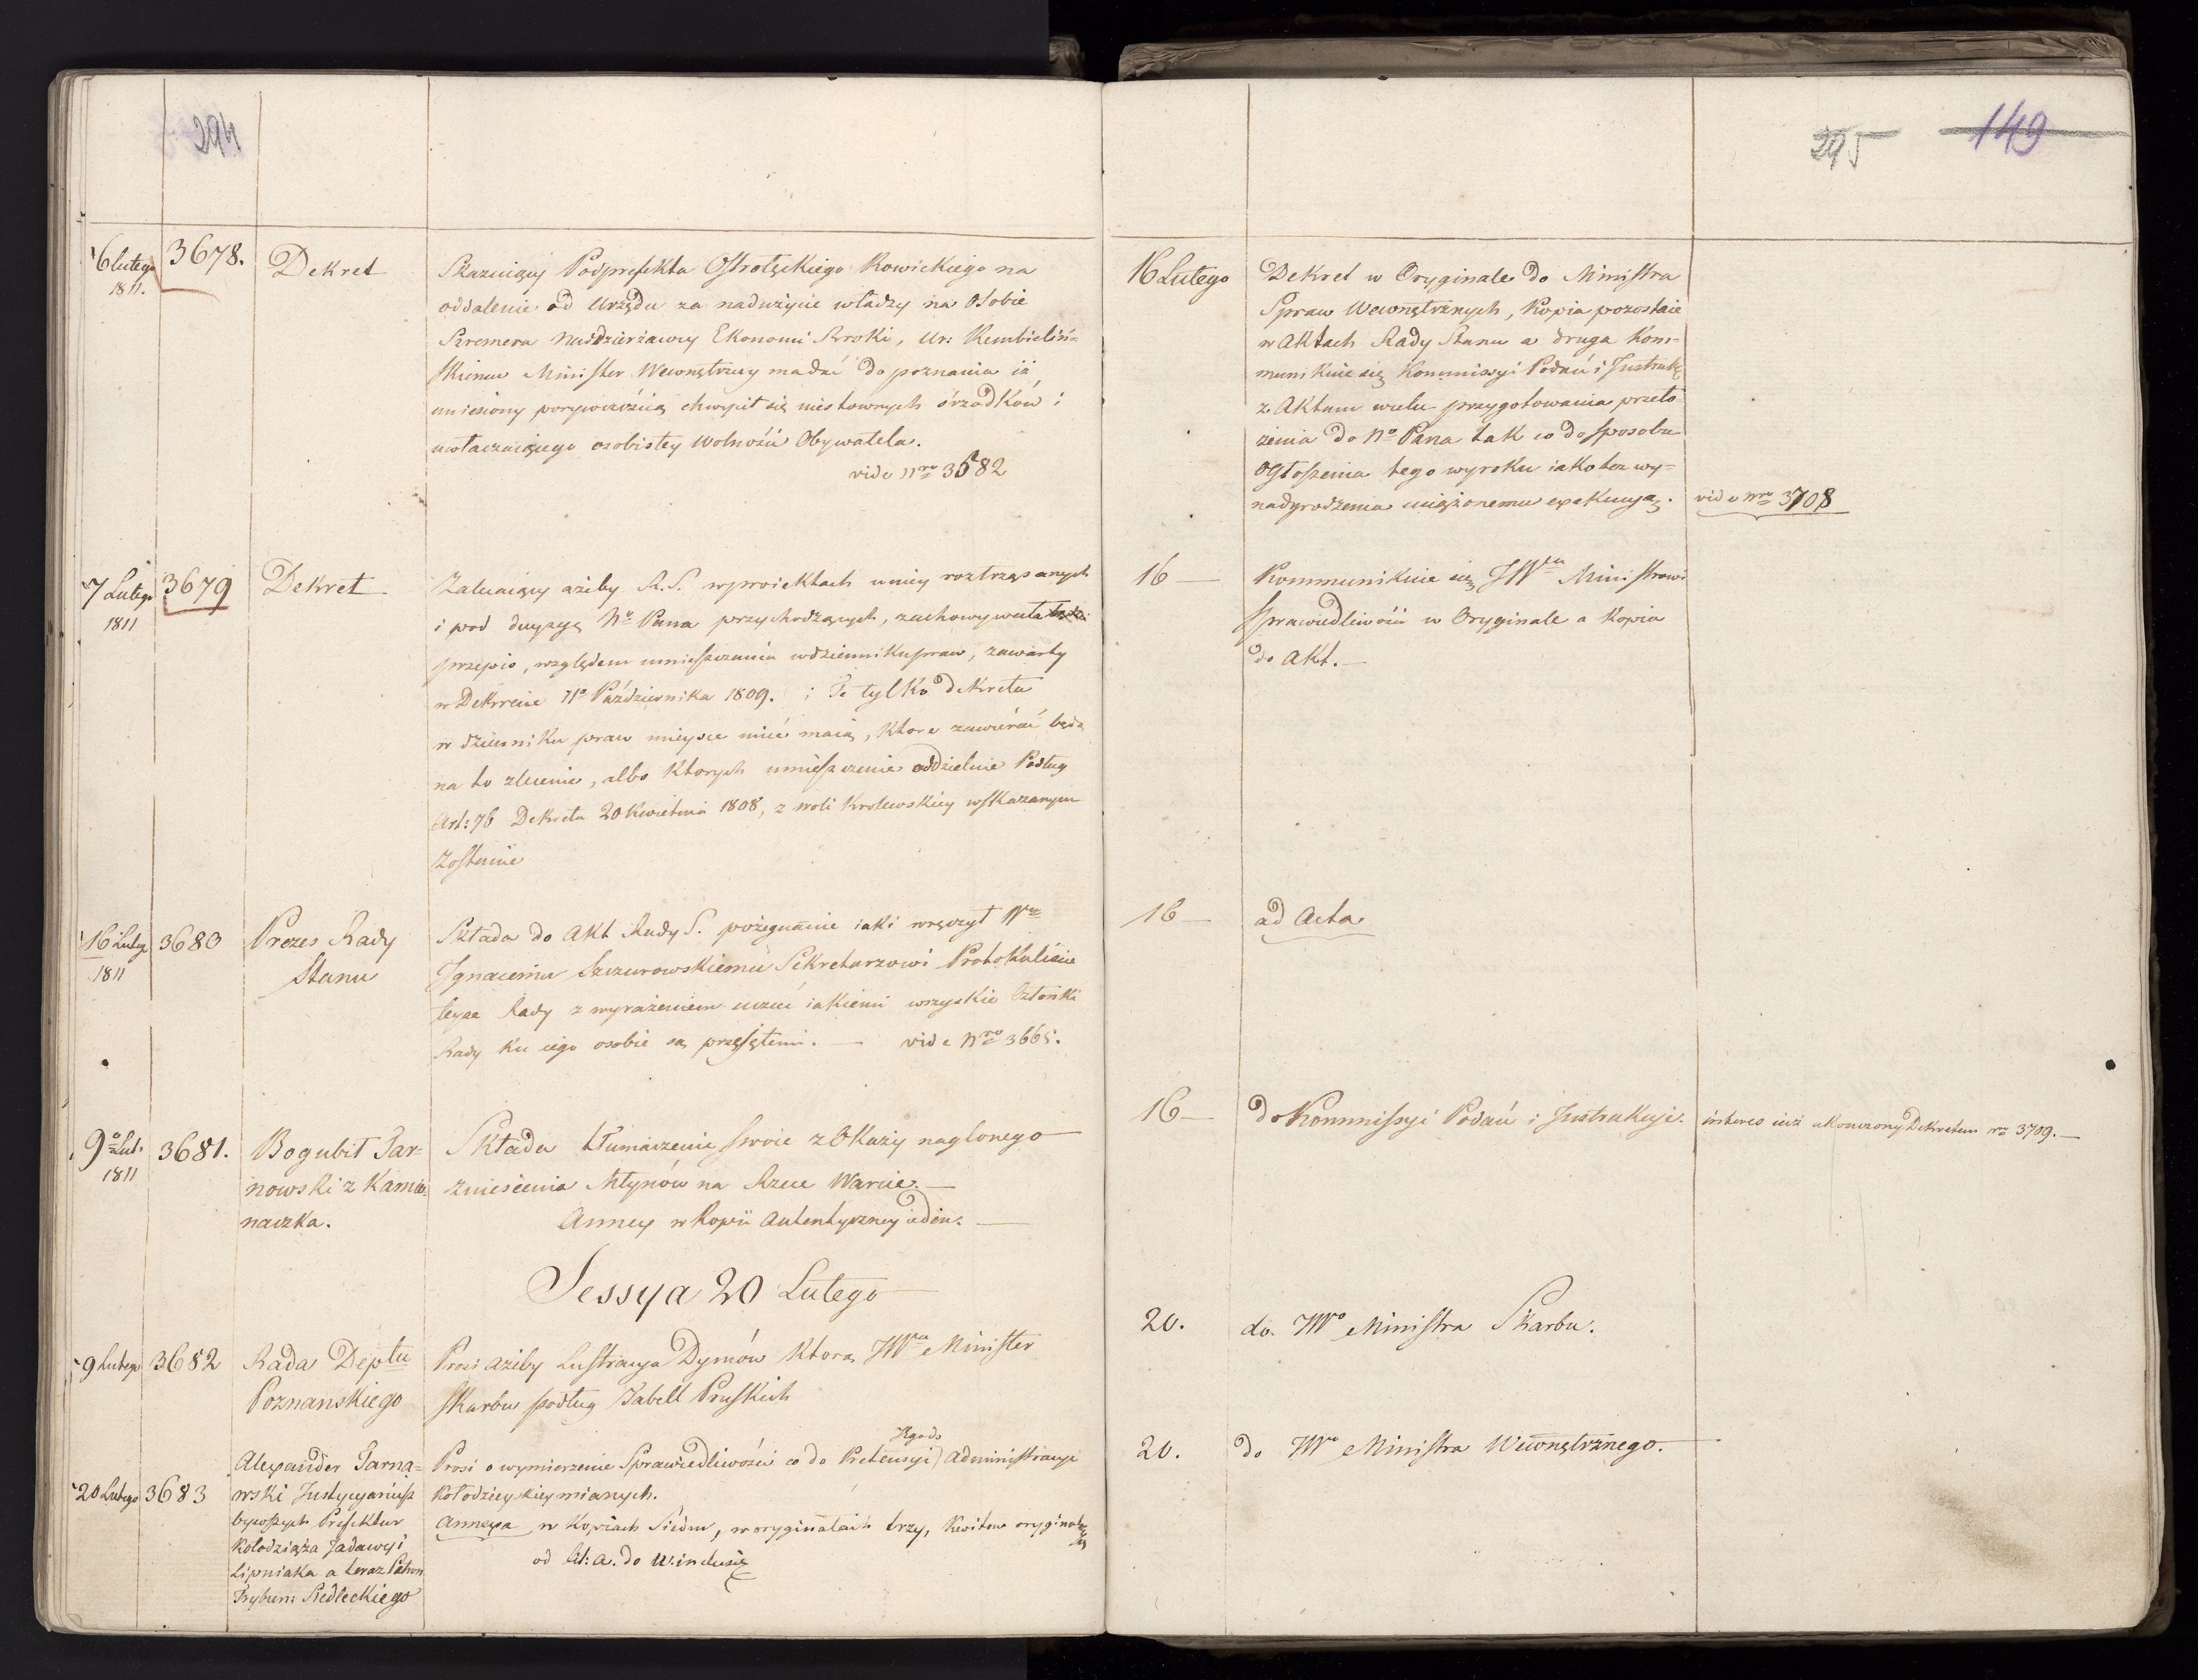 294
6 lutego 3678. Dekret
1811.
Skazuiący Podprefekta Ostrołęckiego Rowickiego na
oddalenie od Urzędu za nadużycie władzy na Osobie
Kremera naddzierżawcy Ekonomi Broki, Ur:
skiemu Minister Wewnętrzny ma dać do poznania iż
uniesiony porywczością chwycił się niestownych śrzodków i
uwłaczaiącego osobistey wolności Obywatela.
vide Nro 3582
7 Lutego 3679 Dekret
1811
Zalecaiący ażeby R.S. w proiektach w niey roztrząsanych
i pod decyzyą No Pana przychodzących, zachowywała
przepis, względem umieszczania w dzienniku praw, zawarty
w Dekrecie 11o Października 1809. i Te tylko dekreta
w dzienniku praw mieysce mieć maią, ktore zawierać będą
na to zlecenie, albo ktorych umieszczenie oddzielnie Podług
Art: 76 Dekretu 20 Kwietnia 1808, z woli Krolewskiey wskazanym
zostanie
16 Lutego 3680 Prezes Rady
1811 Stanu
Składa do Akt Rady S. pożegnanie iaki wręczył Wmu
Ignacemu Szczurowskiemu Sekretarzowi Protokuliście
teyże Rady z wyrażeniem uczuć iakiemi wszyskie Członki
Rady ku iego osobie są przejętemi. — vide Nro 3665.
9o Lut. 3681. Bogubit Tar=
1811 nowski z Kamio=
naczka.
Składa tłumaczenie swoie z Okazyi naglonego
zniesienia Młynów na Rzece Warcie.—
Annex w Kopii Autentyczney ieden.—
Sessya 20 Lutego
9 Lutego 3682 Rada Deptu
Poznanskiego
Prosi ażeby Lustracya Dymów ktorą JW Minister
Skarbu podług Tabell Pruskich
20 Lutego 3683 Alexander Tarna=
wski Justycyariusz
bywszych Prefektur
Kołodziąża Jadowy i
Lipniaka a teraz Patron
Trybun: Siedleckiego
Zgodo
Prosi o wymierzenie Sprawiedliwości co do Pretensyi Administracyi
Kołodzieyskiey mianych.
Annexa w Kopiach Siedm, w oryginałach trzy, Kwitow
od lit: A. do W. inclusię
295 149
16 Lutego
Dekret w Oryginale do Ministra
Spraw Wewnętrznych, Kopia pozostaie
w Aktach Rady Stanu a druga Kom=
munikuie się Kommissyi Podań i Instrukc
z Aktum wcelu przygotowania przeło=
żenia do No Pana tak co do sposobu
Ogłoszenia tego wyroku iako też wy=
nadgrodzenia uciążonemu exekucyą.
vide nro 3708
16 —
Kommunikuie się JW Ministrowi
Sprawiedliwości w Oryginale a Kopia
do Akt.—
16 — ad Acta
16 — do Kommissyi Podań i Instrukcyi.
interes iuż ukonczony Dekretem nro 3709.—
20. do JWo Ministra Skarbu.
20. do JWo Ministra Wewnętrznego.